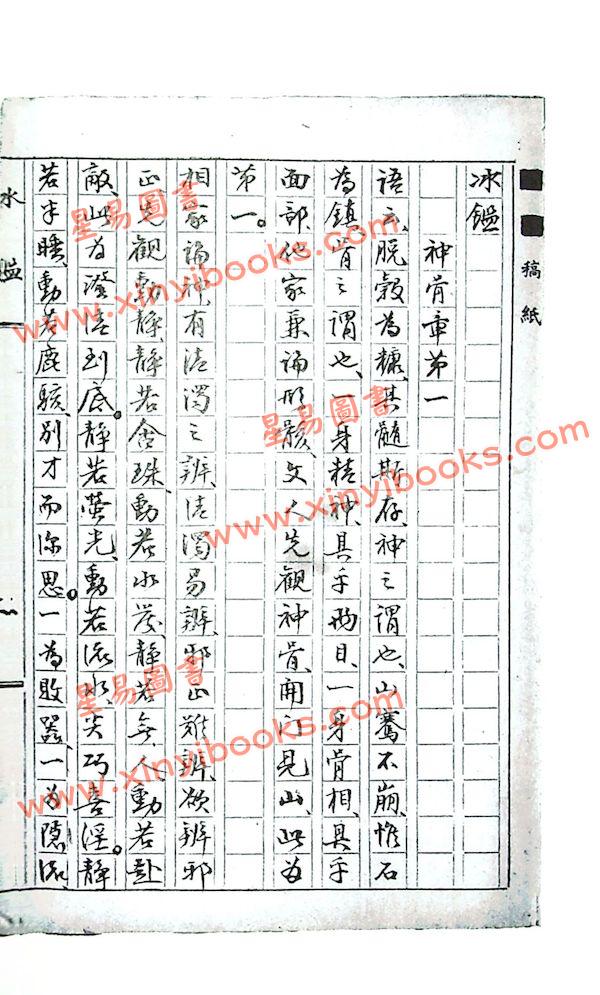 稿紙
冰鑑
神骨章第一
語云、脫穀為糠、其髓斯存、神之謂也、山騫不崩、惟石
為鎮、骨之謂也、一身精神、具乎兩目、一身骨相、具乎
面部、他家兼論形骸、文人先觀神骨、開門見山、此為
第一。
相家論神、有清濁之辨、清濁易辨、邪正難辨、欲辨邪
正、先觀動靜、靜若含珠、動若水發、靜若無人、動若赴
敵、此為澄清到底。靜若螢光、動若流水、尖巧喜淫。靜
若半睡、動若鹿駭、別才而深思。一為敗器、一為隱流、
冰鑑
星易圖書
www.xinyibooks.com
星易圖書
www.xinyibooks.com
星易圖書
www.xinyibooks.com